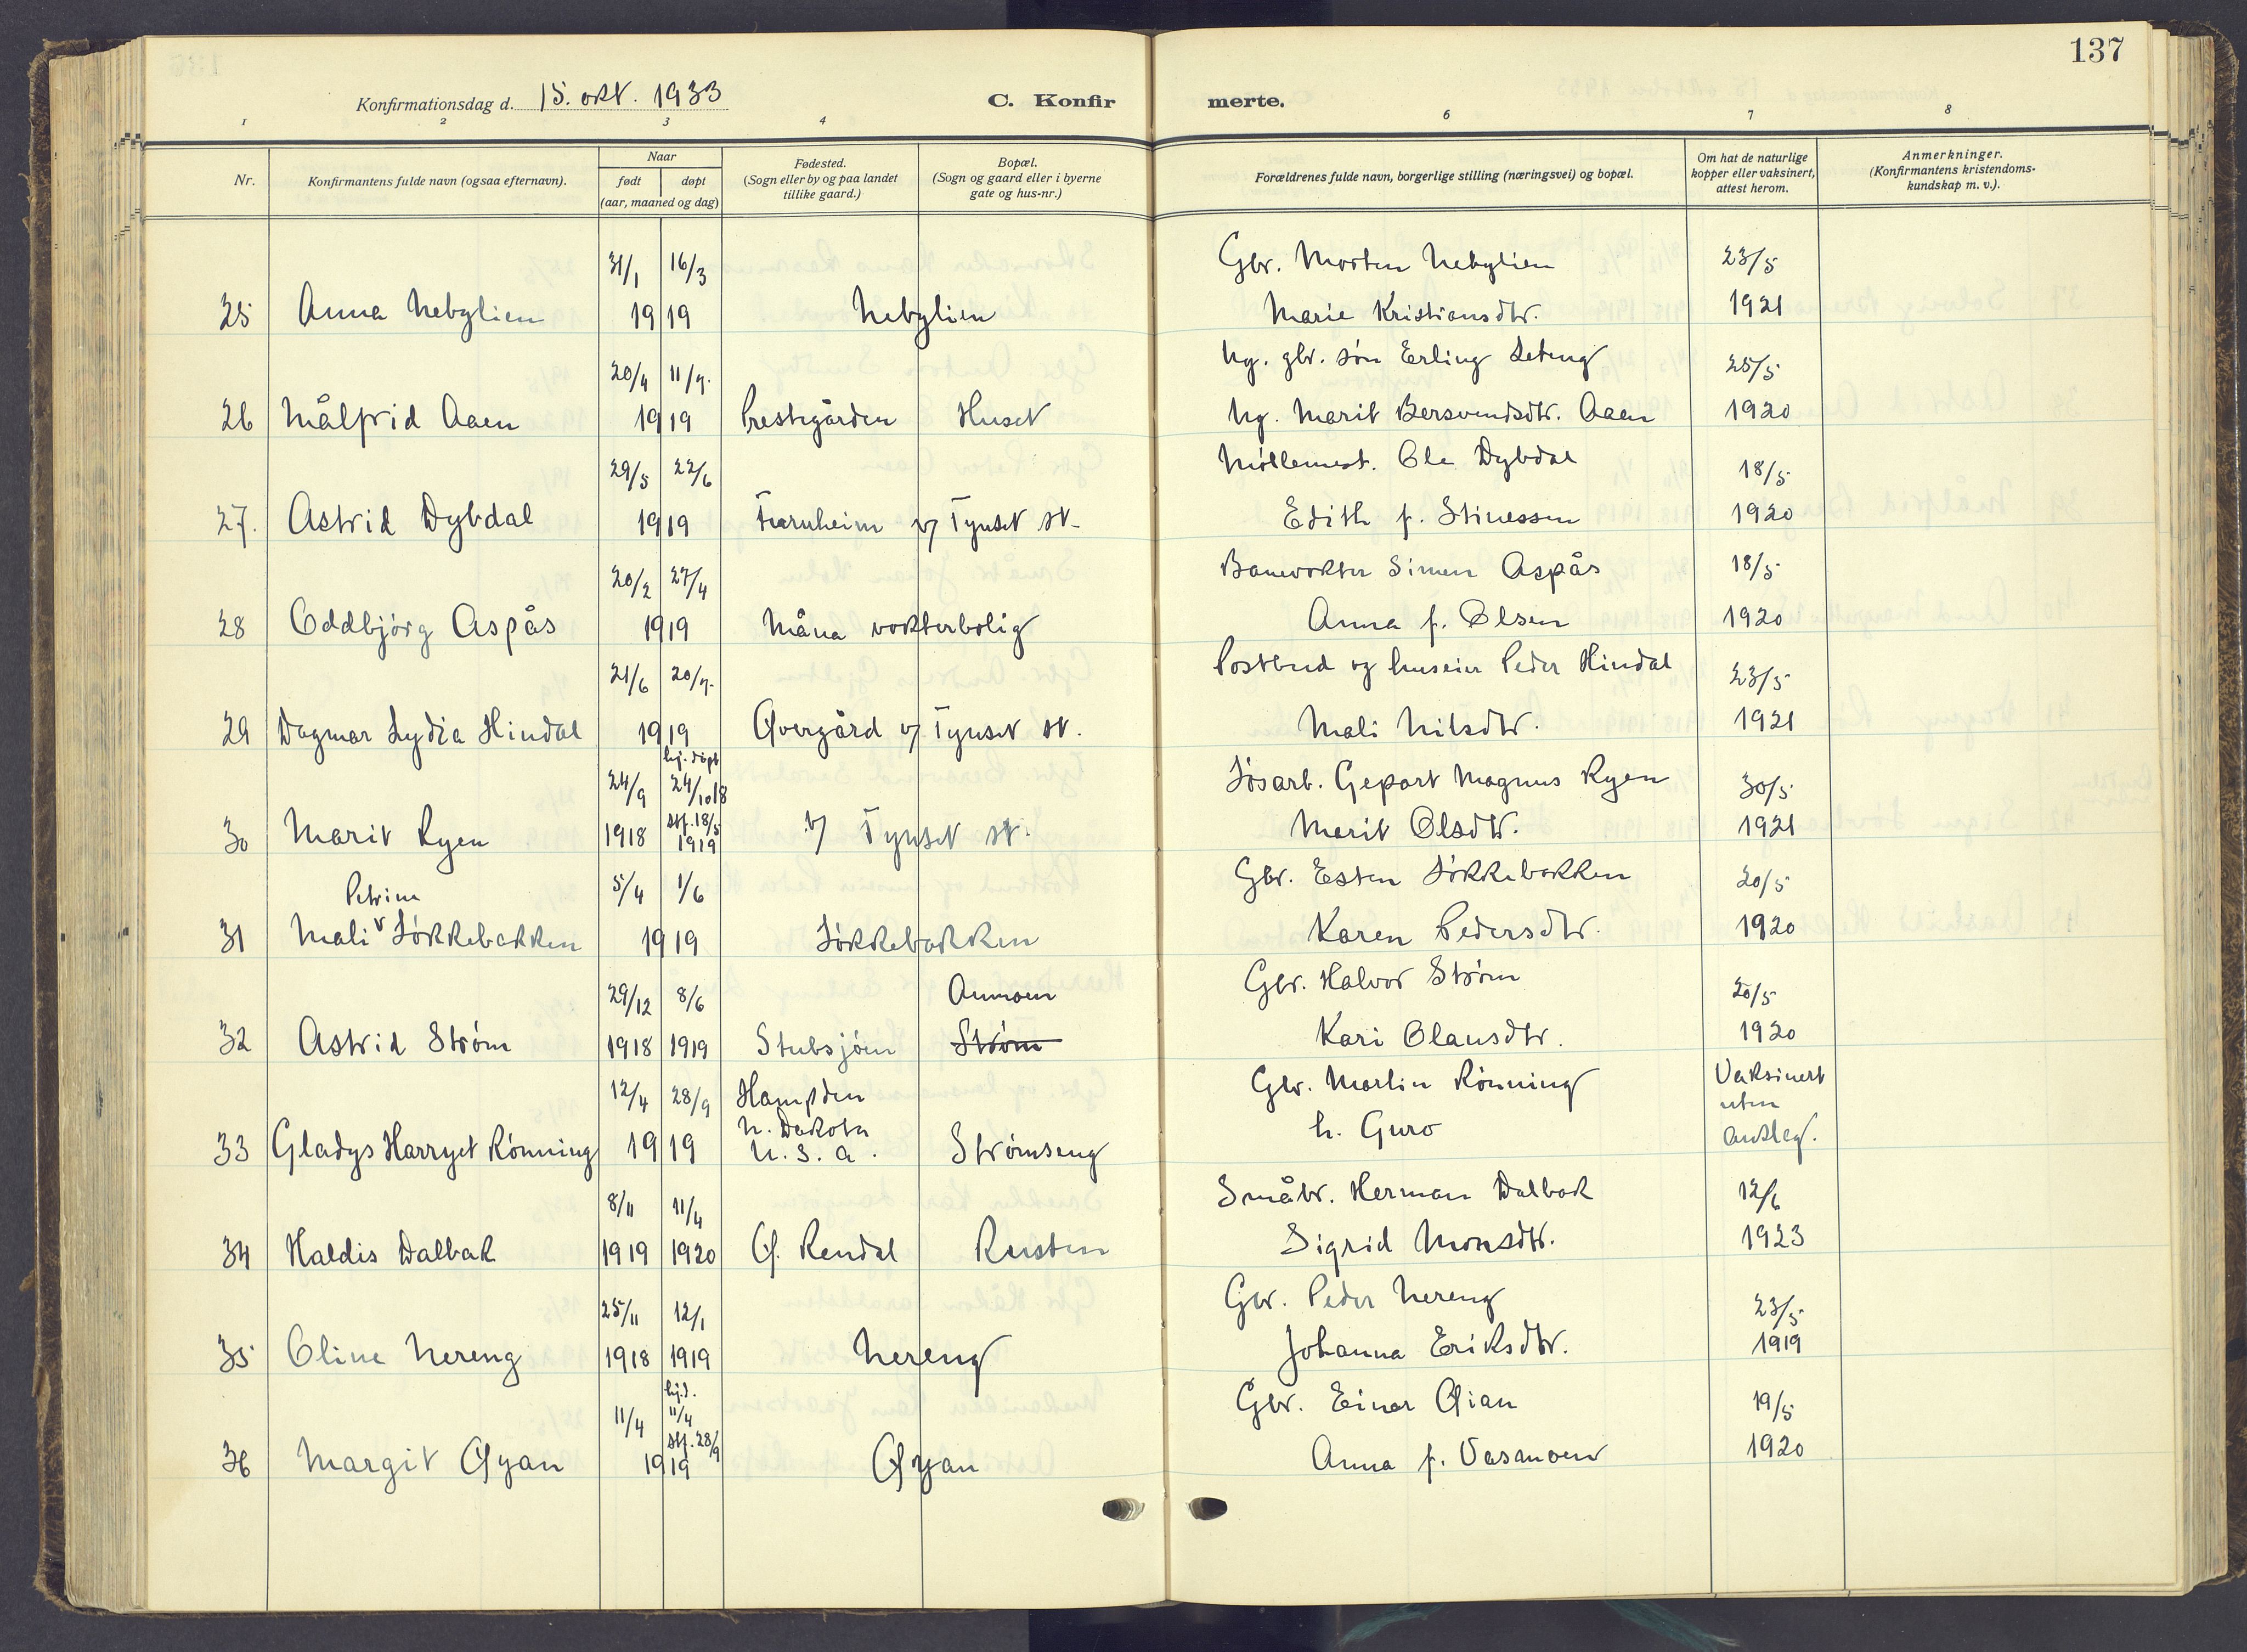 137
Konfirmationsdag d. 15. okt. 1933
C. Konfirmerte.
1 2 3 4 6 7 8
Nr.
Konfirmantens fulde navn (ogsaa efternavn).
Naar
født døpt
(aar, maaned og dag)
Fødested.
(Sogn eller by og paa landet
tillike gaard.)
Bopæl.
(Sogn og gaard eller i byerne
gate og hus-nr.)
Forældrenes fulde navn, borgerlige stilling (næringsvei) og bopæl.
Om hat de naturlige
kopper eller vaksinert,
attest herom.
Anmerkninger.
(Konfirmantens kristendoms-
kundskap m. v.).
31/1 16/3 Gbr. Morten Nebylien 23/5
25 Anna Nebylien 1919 Nebylien Marie Kristiansdtr. 1921
20/4 11/7. Ug. gbr. søn Erling Leteng 25/5
26 Målfrid Aaen 1919 Prestegården Huset Ug. Marit Bersvendsdtr. Aaen 1920
29/5 22/6 Møllemest. Ole Dybdal 18/5
27. Astrid Dybdal 1919 Furuheim v/ Tynset st. Edith f. Stinessen 1920
20/2 27/4 Banevokter Simen Aspås 18/5
28 Oddbjørg Aspås 1919 Måna vokterbolig Anna f. Olsen 1920
21/6 20/7. Postbud og huseier Peder Hindal 23/5
29 Dagmar Lydia Hindal 1919 Øvergård v/ Tynset st. Mali Nilsdtr. 1921
hj. døpt
24/9 24/10 18 Løsarb. Gepart Magnus Ryen 30/5
stf. 18/5
30 Marit Ryen 1918 1919 v/ Tynset st. Marit Olsdtr. 1921
Petrine 5/4 1/6 Gbr. Esten Løkkebakken 20/5
31 Mali Løkkebakken 1919 Løkkebakken Karen Pedersdtr. 1920
29/12 8/6 Aumoen Gbr. Halvor Strøm 20/5
32 Astrid Strøm 1918 1919 Stubsjøen Strøm Kari Olausdtr. 1920
12/4 28/9 Hampden Gbr. Martin Rønning Vaksinert
N. Dakota uten
33 Gladys Harryet Rønning 1919 U. S. A. Strømseng h. Guro antleg.
8/11 11/4 Småbr. Herman Dalbak 12/6
34 Haldis Dalbak 1919 1920 Ø. Rendal Rusten Sigrid Monsdtr. 1923
25/11 12/1 Gbr. Peder Nereng 23/5
35 Oline Nereng 1918 1919 Nereng Johanna Eriksdtr. 1919
hj.d.
11/4 11/4 Gbr. Einar Øian 19/5
stf. 28/9
36 Margit Øyan 1919 Øyan Anna f. Vasmoen 1920